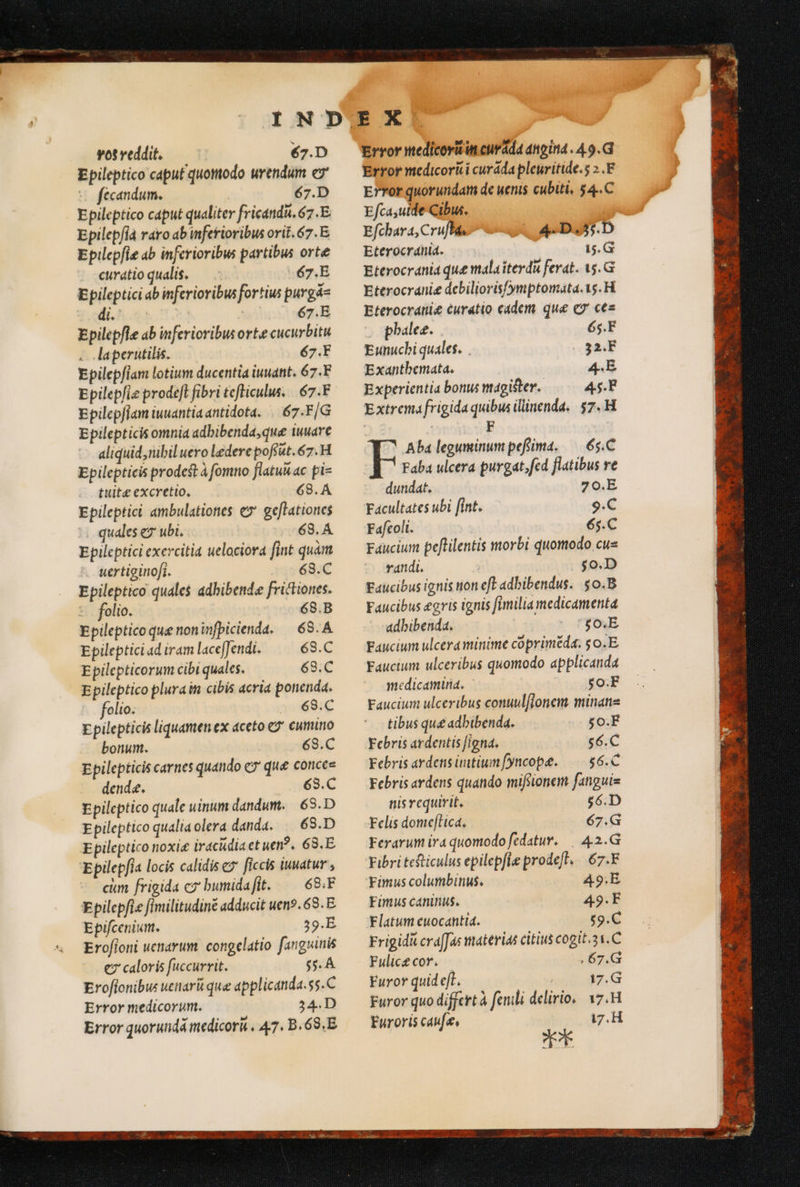 INDEX
ros reddit. 67.D
Epileptico caput quomodo urendum &
secandum. 67.D
Epileptico caput qualiter fricandū. 67.E
Epilepsia raro ab inferioribus orit. 67.E
Epilepsię ab inferioribus partibus ortę
curatio qualis. 67.E
Epileptici ab inferioribus fortius purgā=
di. 67.E
Epilepsię ab inferioribus ortę cucurbitu
la perutilis. 67.F
Epilepsiam lotium ducentia iuuant. 67.F
Epilepsię prodest fibri testiculus. 67.F
Epilepsiam iuuantia antidota. 67.F/G
Epilepticis omnia adhibenda, quę iuuare
aliquid, nihil uero lædere possūt. 67.H
Epilepticis prodest à somno flatuū ac pi=
tuitę excretio. 68.A
Epileptici ambulationes & gestationes
quales & ubi. 68.A
Epileptici exercitia uelociora sint quàm
uertiginosi. 68.C
Epileptico quales adhibendę frictiones.
folio. 68.B
Epileptico quę non inspicienda. 68.A
Epileptici ad iram lacessendi. 68.C
Epilepticorum cibi quales. 68.C
Epileptico plura in cibis acria ponenda.
folio. 68.C
Epilepticis liquamen ex aceto & cumino
bonum. 68.C
Epilepticis carnes quando & quę conce=
dendę. 68.C
Epileptico quale uinum dandum. 68.D
Epileptico qualia olera danda. 68.D
Epileptico noxię iracūdia et uenꝰ. 68.E
Epilepsia locis calidis & siccis iuuatur,
cùm frigida & humida sit. 68.F
Epilepsię similitudinē adducit uenꝰ. 68.E
Episcenium. 39.E
Erosioni uenarum congelatio sanguinis
& caloris succurrit. 55.A
Erosionibus uenarū quę applicanda. 55.C
Error medicorum. 34.D
Error quorundā medicorū. 47.B.68.E
Error medicorū in curāda angina. 49.G
Error medicorū i curāda pleuritide. 52.F
Error quorundam de uenis cubiti. 54.C
Esca, uide Cibus.
Eschara, Crusta. 4.D.35.D
Eterocrania. 15.G
Eterocrania quę mala iterdū ferat. 15.G
Eterocranię debilioris symptomata. 15.H
Eterocranię curatio eadem quę & ce=
phaleę. 65.F
Eunuchi quales. 32.F
Exanthemata. 4.E
Experientia bonus magister. 45.F
Extrema frigida quibus illinenda. 57.H
F
FAba leguminum pessima. 65.C
Faba ulcera purgat, sed flatibus re
dundat. 70.E
Facultates ubi sint. 9.C
Faseoli. 65.C
Faucium pestilentis morbi quomodo cu=
randi. 50.D
Faucibus ignis non est adhibendus. 50.B
Faucibus ægris ignis similia medicamenta
adhibenda. 50.E
Faucium ulcera minime cōprimēda. 50.E
Faucium ulceribus quomodo applicanda
medicamina. 50.F
Faucium ulceribus conuulsionem minan=
tibus quę adhibenda. 50.F
Febris ardentis signa. 56.C
Febris ardens initium syncopę. 56.C
Febris ardens quando missionem sangui=
nis requirit. 56.D
Felis domestica. 67.G
Ferarum ira quomodo sedatur. 42.G
Fibri testiculus epilepsię prodest. 67.F
Fimus columbinus. 49.E
Fimus caninus. 49.F
Flatum euocantia. 59.C
Frigidū crassas materias citius cogit. 31.C
Fulicę cor. 67.G
Furor quid est. 17.G
Furor quo differt à senili delirio. 17.H
Furoris causę. 17.H
**